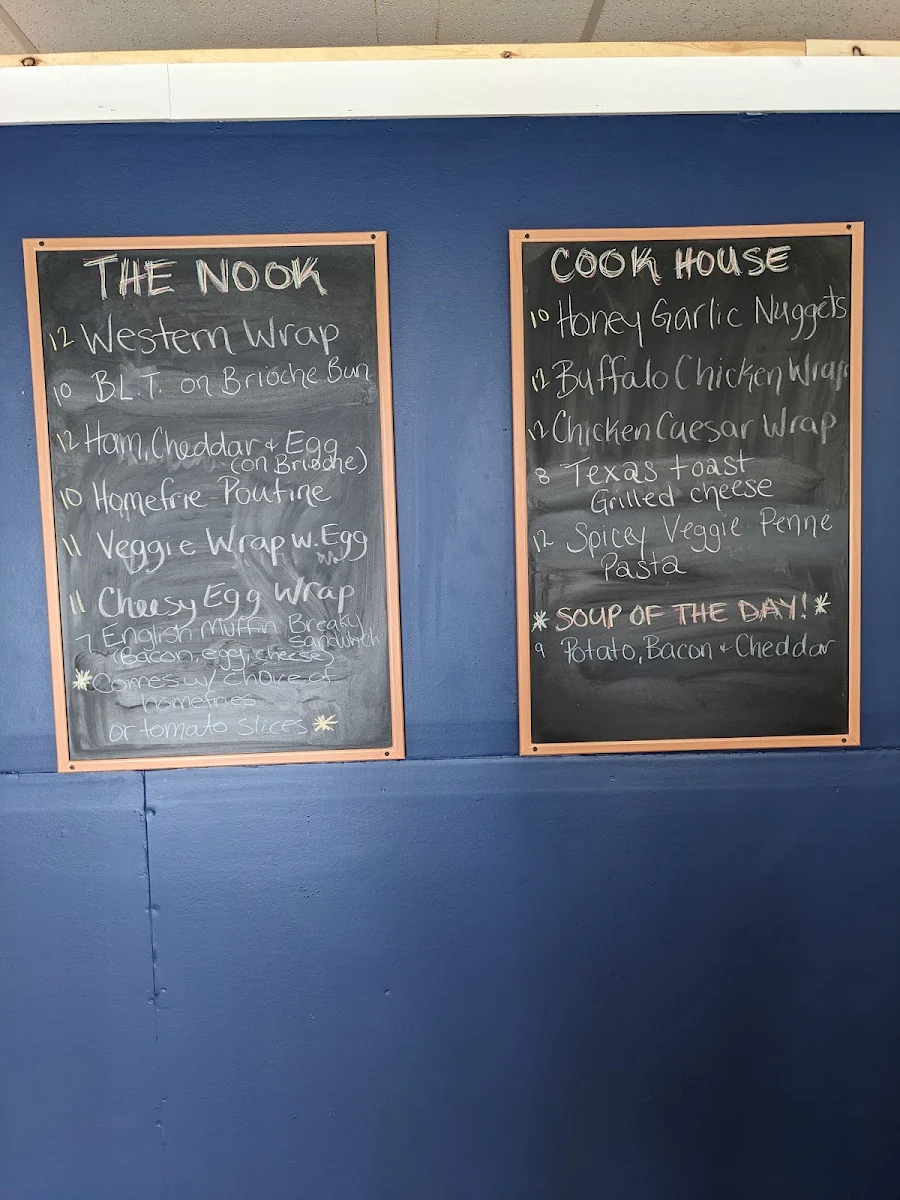 THE NOOK
12 Western Wrap
10 B.L.T. on Brioche Bun
12 Ham, Cheddar + Egg
(on Brioche)
10 Homefrie Poutine
11 Veggie Wrap w. Egg
11 Cheesy Egg Wrap
7 English Muffin Breaky
sandwhich
(Bacon, egg, cheese)
*Comes w/ choice of
homefries
or tomato slices *
COOK HOUSE
10 Honey Garlic Nuggets
12 Buffalo Chicken Wrap
12 Chicken Caesar Wrap
8 Texas toast
Grilled cheese
12 Spicey Veggie Penne
Pasta
* SOUP OF THE DAY! *
9 Potato, Bacon + Cheddar